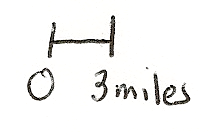 0 3 miles